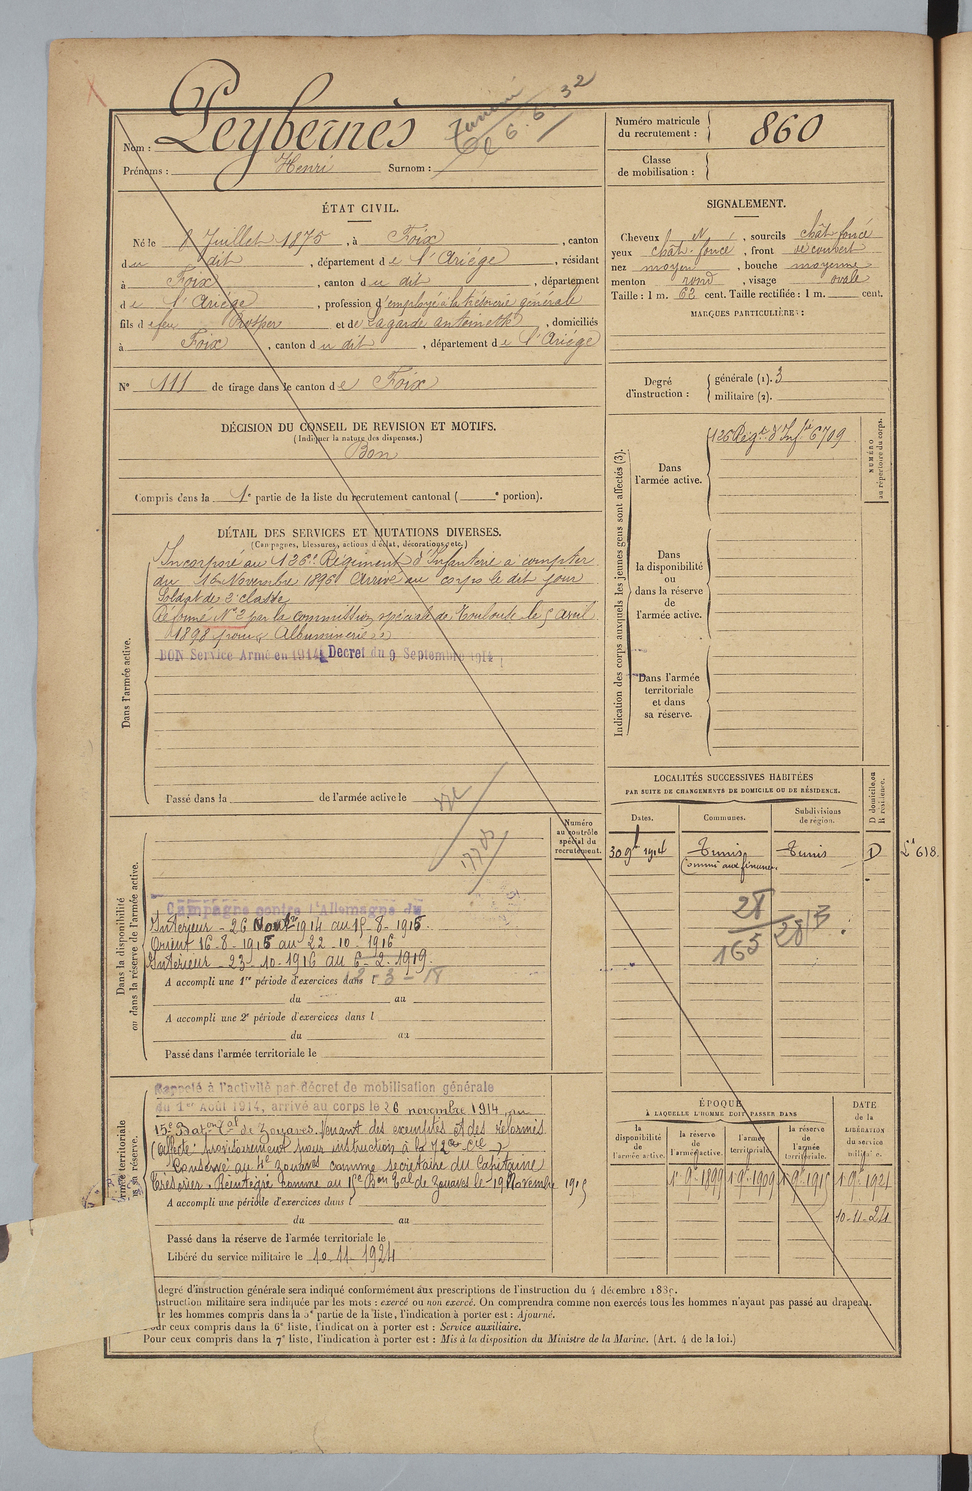 Nom : Peybernès
Prénoms : Henri Surnom :
6. 5. 32
Numéro matricule du recrutement : 860
Classe de mobilisation :
ÉTAT CIVIL.
Né le 8 Juillet 1875, à Foix, canton
du dit, département de l'Ariège, résidant
à Foix, canton du dit, département
de l'Ariège, profession d'employé à la trésorerie générale
fils de feu Prosper et de Lagarde Antoinette, domiciliés
à Foix, canton du dit, département de l'Ariège
N° 111 de tirage dans le canton de Foix
DÉCISION DU CONSEIL DE REVISION ET MOTIFS.
(Indiquer la nature des dispenses.)
Bon
Compris dans la 1e partie de la liste du recrutement cantonal ( e portion).
SIGNALEMENT.
Cheveux N, sourcils chât. foncé
yeux chât. foncé, front découvert
nez moyen, bouche moyenne
menton rond, visage ovale
Taille : 1 m. 62 cent. Taille rectifiée : 1 m. cent.
MARQUES PARTICULIÈRES :
Degré d'instruction : générale (1). 3
militaire (2).
DÉTAIL DES SERVICES ET MUTATIONS DIVERSES.
(Campagnes, blessures, actions d'éclat, décorations, etc.)
Dans l'armée active.
Incorporé au 126e Régiment d'Infanterie à compter
du 16 Novembre 1896 Arrivé au corps le dit jour
Soldat de 2e classe
Réformé N° 2 par la commission spéciale de Toulouse le 5 Avril
1898 pour « Albuminurie »
BON Service Armé en 1914, Decret du 9 Septembre 1914
Passé dans la de l'armée active le
Indication des corps auxquels les jeunes gens sont affectés (3).
NUMÉRO au répertoire du corps.
Dans l'armée active.
126 Régt d'Infie 6709
Dans la disponibilité ou dans la réserve de l'armée active.
Dans l'armée territoriale et dans sa réserve.
LOCALITÉS SUCCESSIVES HABITÉES
PAR SUITE DE CHANGEMENTS DE DOMICILE OU DE RÉSIDENCE.
D domicile ou R résidence.
Dates. Communes. Subdivisions de région.
30 9bre 1914 Tunis Tunis D
(Commis aux finances)
Lt 618
28
165
2813
Numéro au contrôle spécial du recrutement.
Dans la disponibilité ou dans la réserve de l'armée active.
Campagne contre l'Allemagne du
Intérieur - 26 Novbre 1914 au 15-8-1915.
Orient 16-8-1915 au 22-10-1916
Intérieur - 23-10-1916 au 6-2-1919.
A accompli une 1re période d'exercices dans l
du au
A accompli une 2e période d'exercices dans l
du au
Passé dans l'armée territoriale le
Armée territoriale et sa réserve.
Rappelé à l'activité par décret de mobilisation générale
du 1er Août 1914, arrivé au corps le 26 novembre 1914, au
15e Baton Tal de Zouaves. Venant des exemptés et des réformés
(Affecté provisoirement pour instruction à la 72e Cie)
Conservé au 4e Zouaves comme secrétaire du Capitaine
Trésorier. Réintégré comme au 15e Bon Tal de Zouaves le 19 Novembre 1915
A accompli une période d'exercices dans l
du au
Passé dans la réserve de l'armée territoriale le
Libéré du service militaire le 10.11.1924
ÉPOQUE
À LAQUELLE L'HOMME DOIT PASSER DANS
la disponibilité de l'armée active.
la réserve de l'armée active.
l'armée territoriale.
la réserve de l'armée territoriale.
DATE de la LIBÉRATION du service militaire.
1er 9bre 1899 1er 9bre 1909 1er 9bre 1915 1er 9bre 1921
10-11-24
degré d'instruction générale sera indiqué conformément aux prescriptions de l'instruction du 4 décembre 1889.
instruction militaire sera indiquée par les mots : exercé ou non exercé. On comprendra comme non exercés tous les hommes n'ayant pas passé au drapeau.
ur les hommes compris dans la 5e partie de la liste, l'indication à porter est : Ajourné.
our ceux compris dans la 6e liste, l'indication à porter est : Service auxiliaire.
Pour ceux compris dans la 7e liste, l'indication à porter est : Mis à la disposition du Ministre de la Marine. (Art. 4 de la loi.)